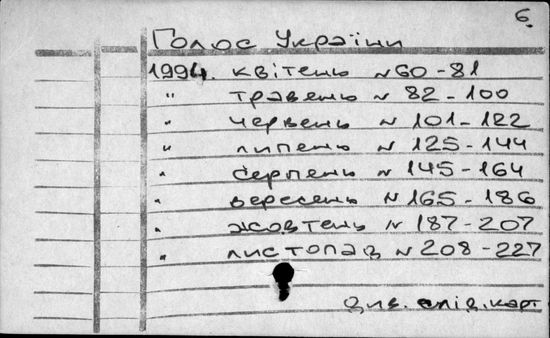 6.
Голос України
1994. квітень N 60-81
" травень N 82-100
" червень N 101-122
" липень N 125-144
" серпень N 145-164
" вересень N 165-186
" жовтень N 187-207
" листопад N 208-227
див. слід. карт